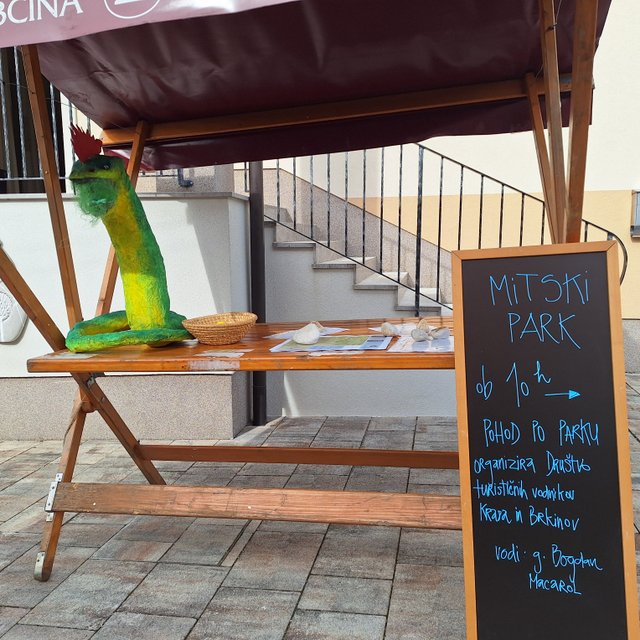 BČINA
MiTSKi
PARK
ob 10h →
POHOD PO PARKU
organizira Društvo
turističnih vodnikov
Krasa in Brkinov
vodi: g. Bogdan
Macarol